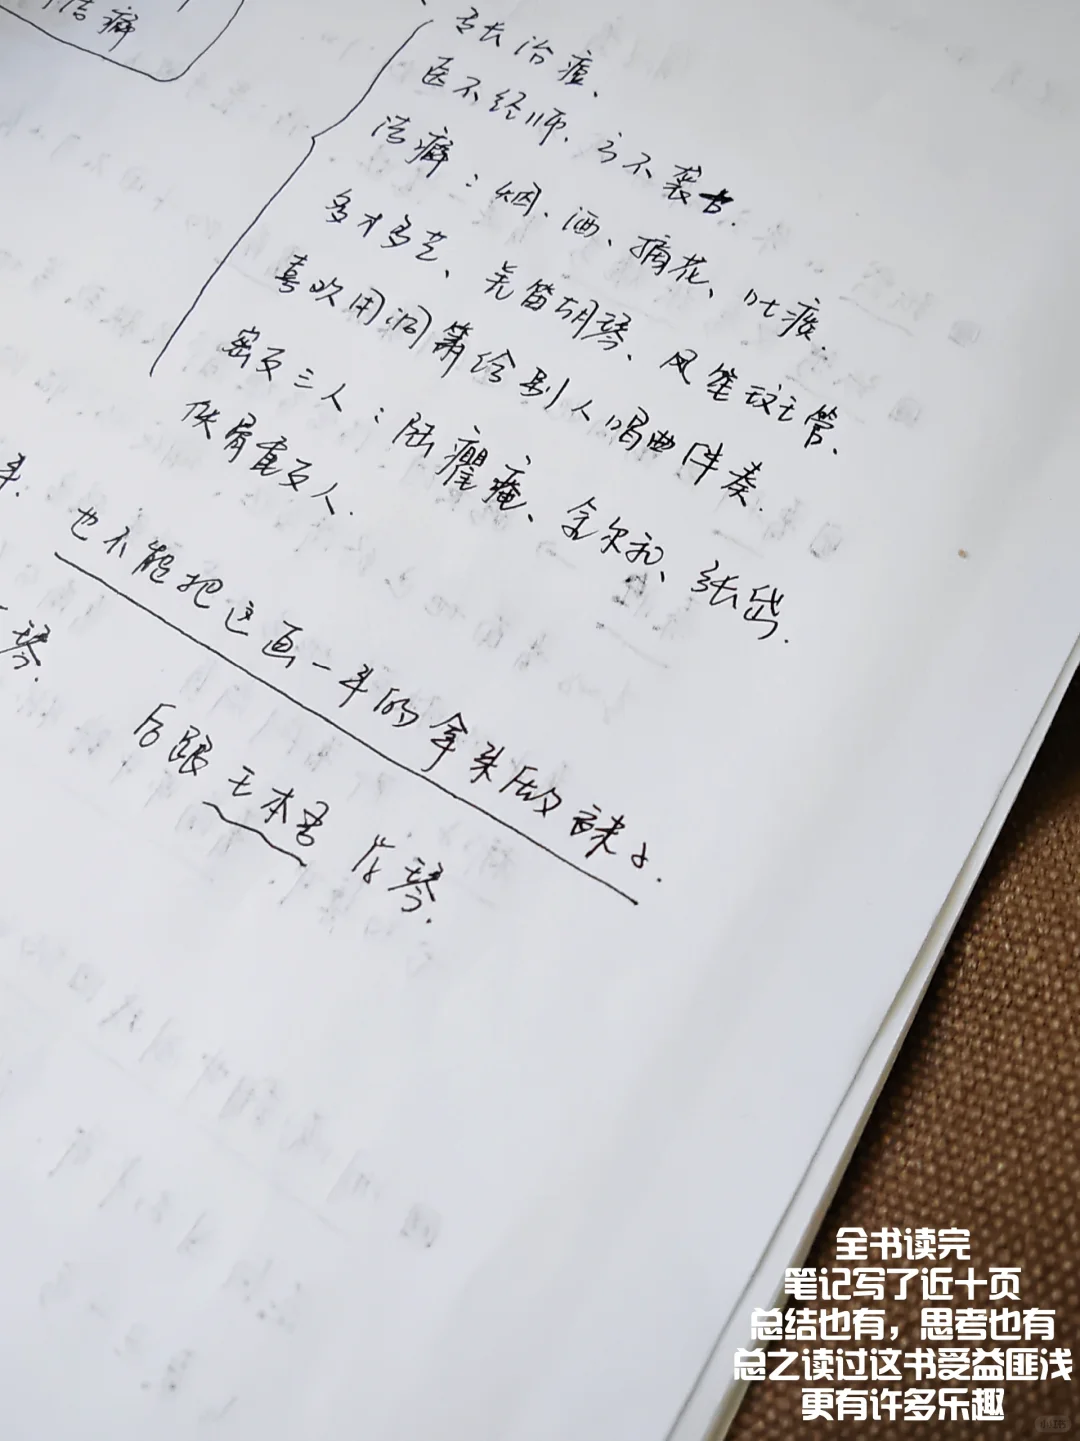 治癖
专长治痘、
医不经师，方不袭古.
洁癖：烟、酒、摘花、吐痰.
多才多艺、羌笛胡琴、风笙斑管、
喜欢用洞箫给别人唱曲伴奏.
密友三人：陆癯庵、金尔和、张岱.
侠骨重友人.
琴.
也不能把这画一半的拿来做裱子.
后跟王本吾 琴.
全书读完
笔记写了近十页
总结也有，思考也有
总之读过这书受益匪浅
更有许多乐趣